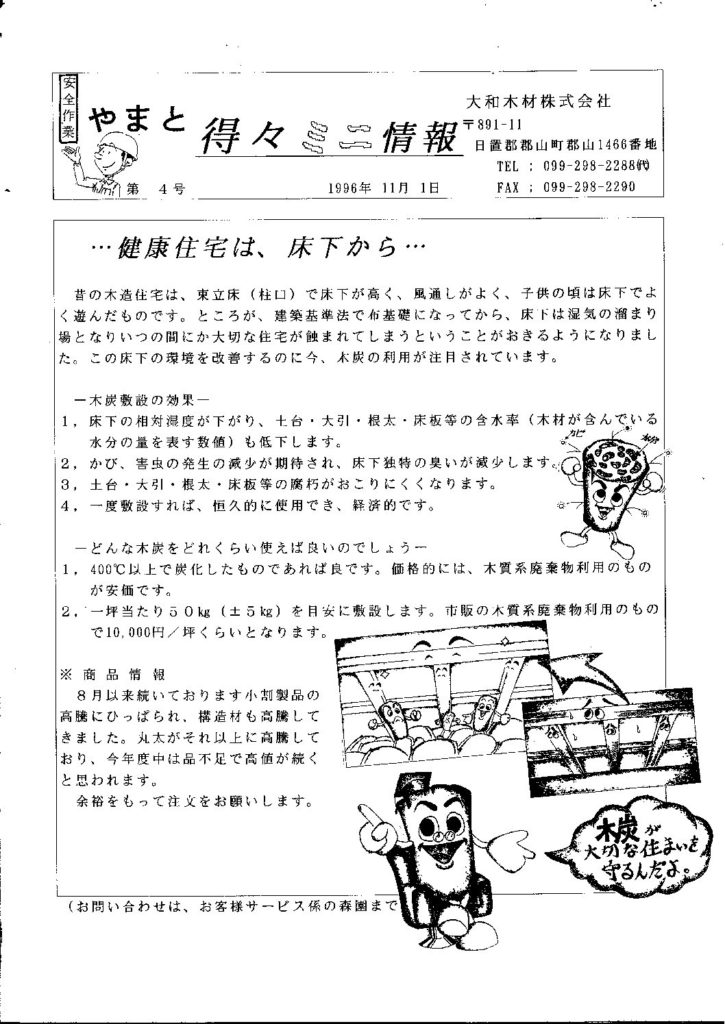 安全作業
やまと
得々ミニ情報
大和木材株式会社
〒891-11
日置郡郡山町郡山1466番地
TEL ; 099-298-2288㈹
FAX ; 099-298-2290
第 4号
1996年 11月 1日
…健康住宅は、床下から…
昔の木造住宅は、束立床(柱口)で床下が高く、風通しがよく、子供の頃は床下でよ
く遊んだものです。ところが、建築基準法で布基礎になってから、床下は湿気の溜まり
場となりいつの間にか大切な住宅が蝕まれてしまうということがおきるようになりまし
た。この床下の環境を改善するのに今、木炭の利用が注目されています。
―木炭敷設の効果―
1,床下の相対湿度が下がり、土台・大引・根太・床板等の含水率(木材が含んでいる
水分の量を表す数値)も低下します。
2,かび、害虫の発生の減少が期待され、床下独特の臭いが減少します。
3,土台・大引・根太・床板等の腐朽がおこりにくくなります。
4,一度敷設すれば、恒久的に使用でき、経済的です。
カビ
水分
―どんな木炭をどれくらい使えば良いのでしょう―
1,400℃以上で炭化したものであれば良です。価格的には、木質系廃棄物利用のもの
が安価です。
2,一坪当たり50㎏(±5㎏)を目安に敷設します。市販の木質系廃棄物利用のもの
で10,000円/坪くらいとなります。
※ 商品情報
8月以来続いております小割製品の
高騰にひっぱられ、構造材も高騰して
きました。丸太がそれ以上に高騰して
おり、今年度中は品不足で高値が続く
と思われます。
余裕をもって注文をお願いします。
木炭が
大切な住まいを
守るんだよ。
(お問い合わせは、お客様サービス係の森園まで